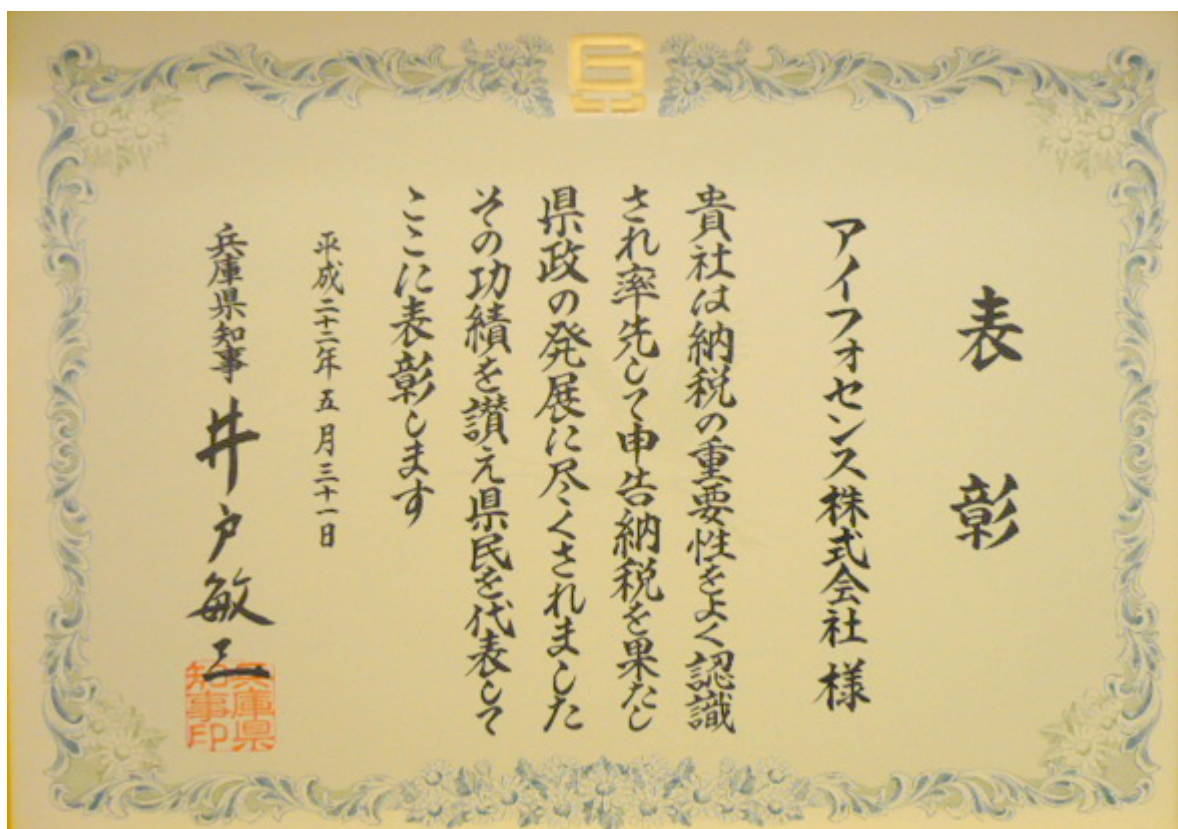 表彰
アイフォセンス株式会社 様
貴社は納税の重要性をよく認識
され率先して申告納税を果たし
県政の発展に尽くされました
その功績を讃え県民を代表して
ここに表彰します
平成二十二年五月三十一日
兵庫県知事 井戸敏三
兵庫県
知事印